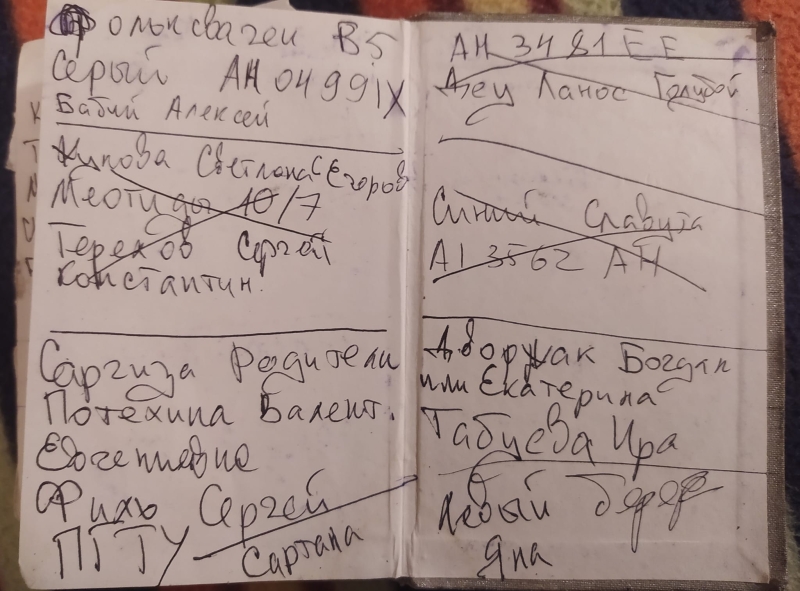 Фольксваген В5
Серый АН 0499 IX
Бабий Алексей
Светлана Егоров
Меотиды 10/7
Терехов Сергей
Константин.
Саргиза Родители
Потехина Валент.
Евгениевна
Сергей
ПГТУ
Сартана
АН 3481 ЕЕ
Деу Ланос Голубой
Синий Славута
АІ 3562 АН
Дворжак Богдан
или Екатерина
Табуева Ира
Левый берег
Яна